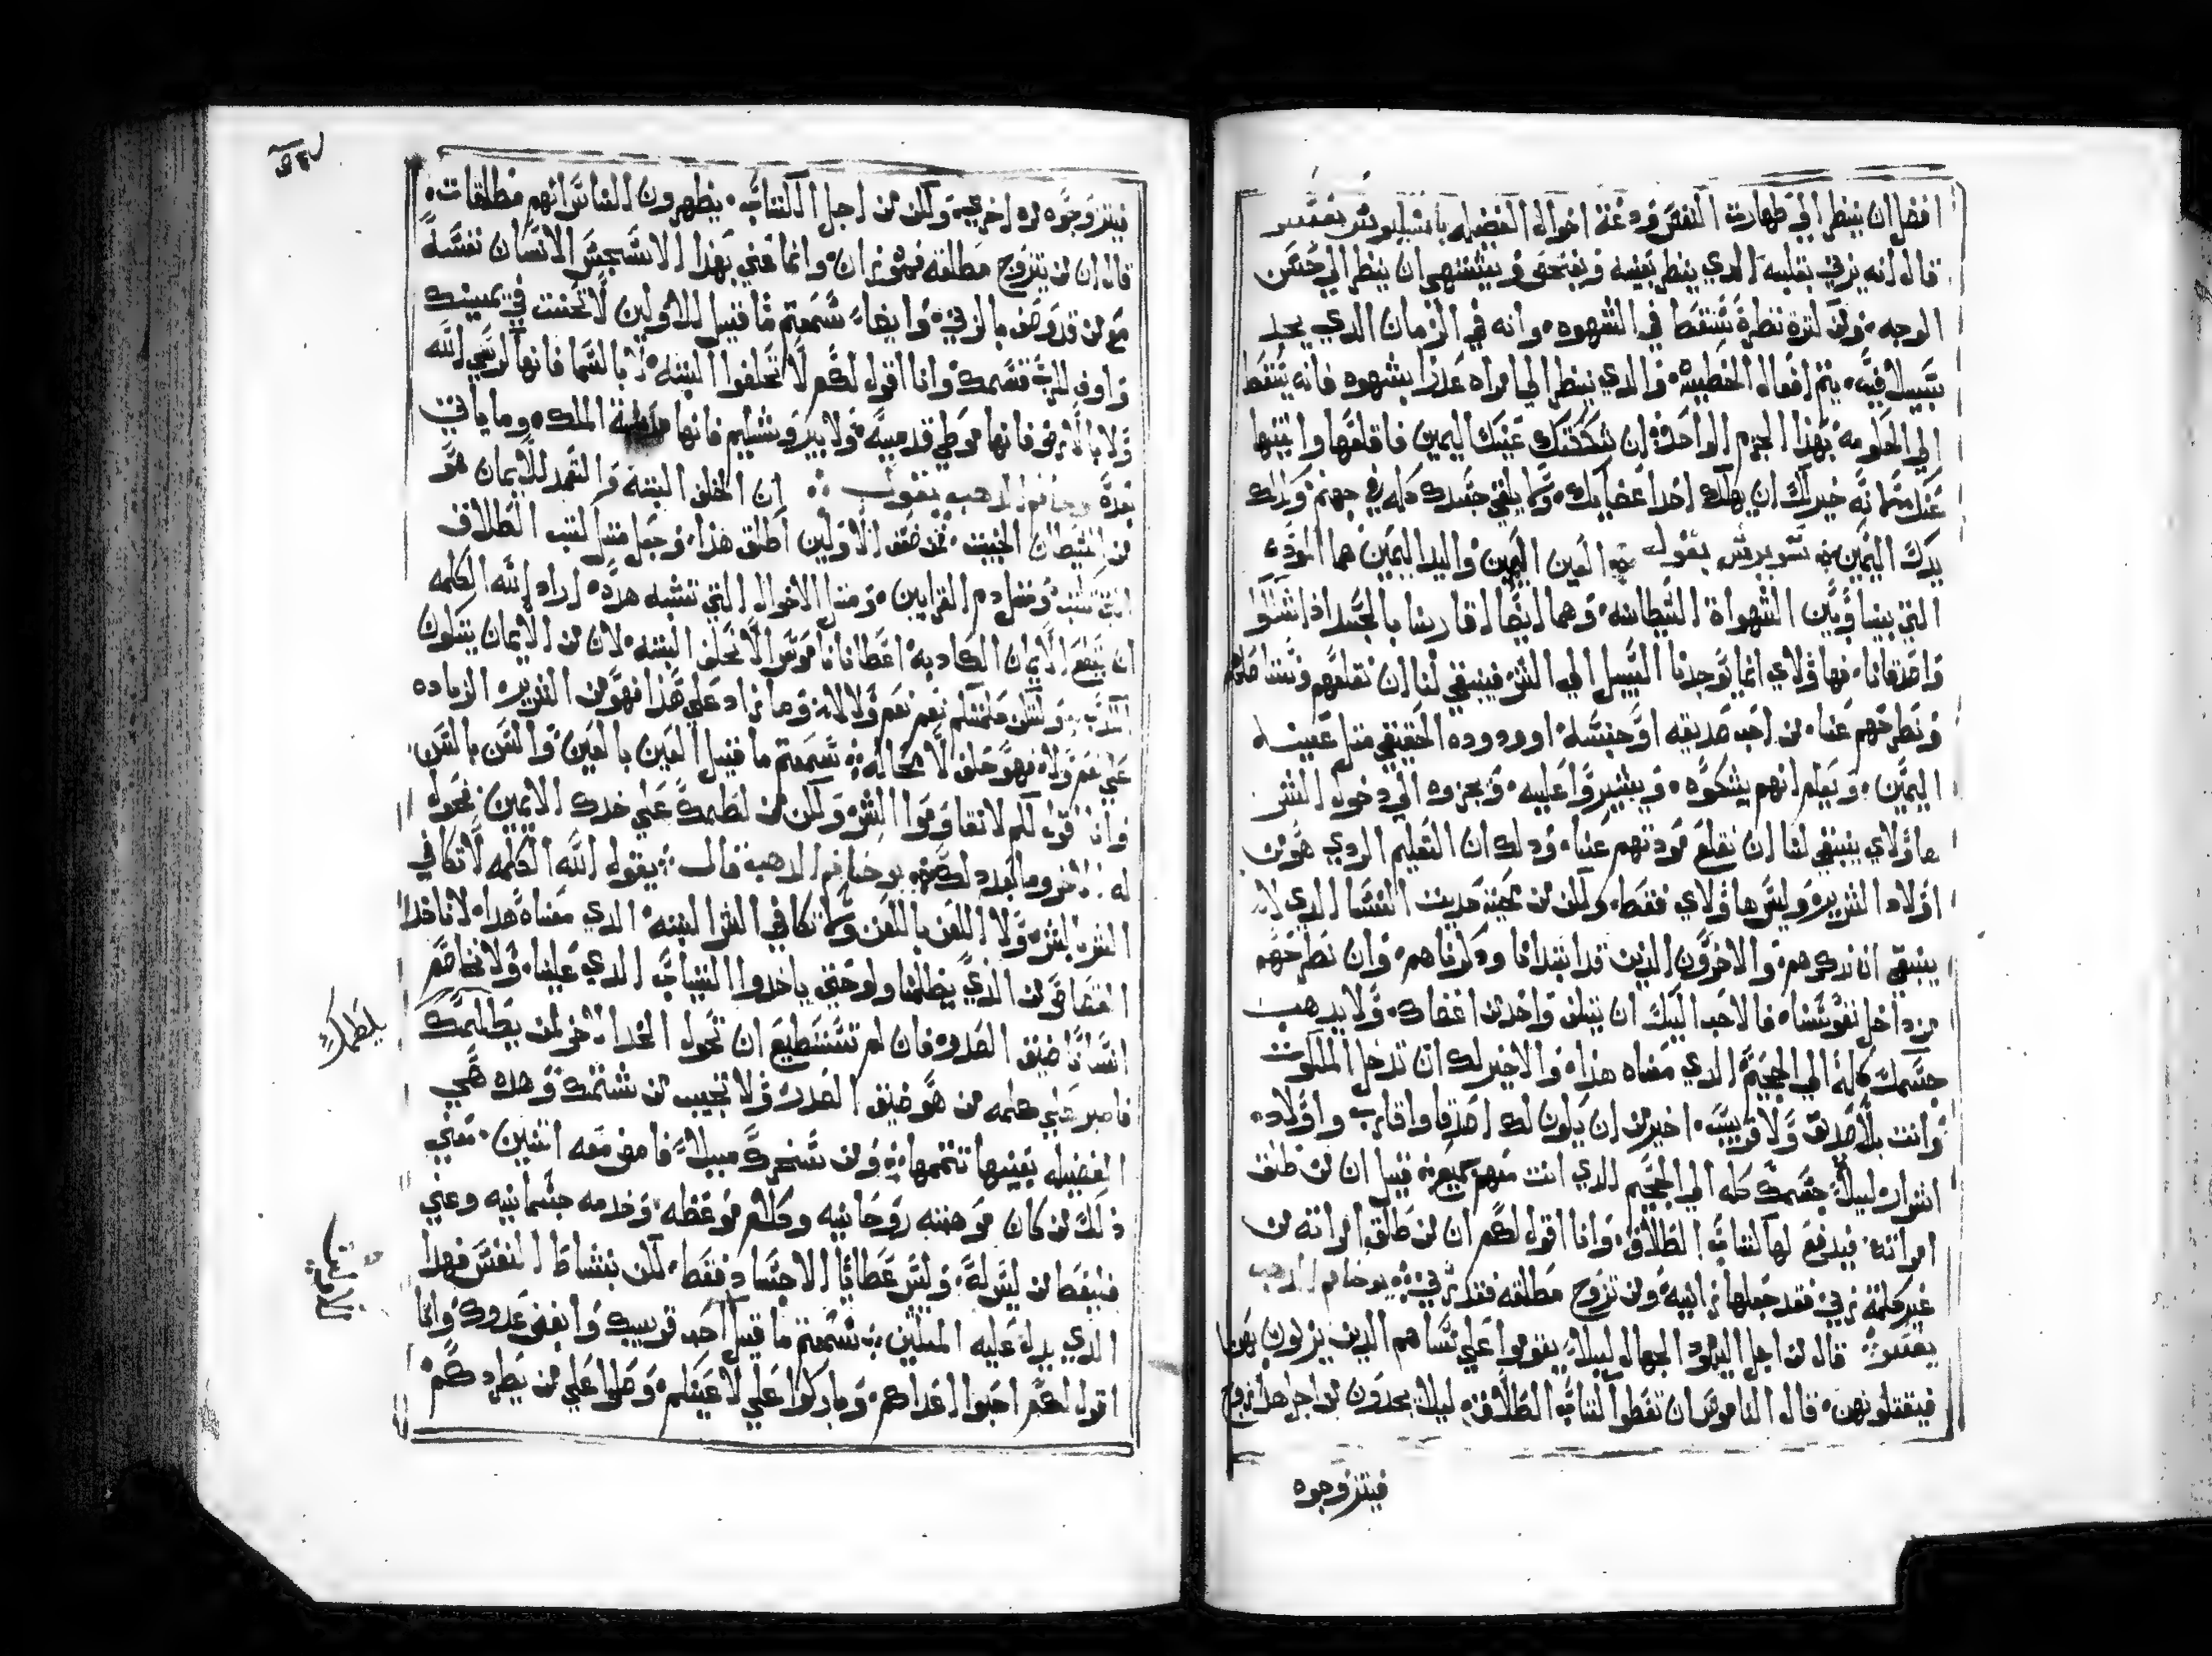 افضل ان ينظر الي طهارت النفس ودعة اخوال الفضيله باسيليوس يفسر
قال انه يزني بقلبه الدي ينظر بعينه ويفحص ويشتهي ان ينظر الي حسن
الوجه ومن كثرة نظرة يسقط في الشهوه وانه في الزمان الدي يجد
سبيلا فيه يتم افعال الخطيه والدي ينظر الي امراه عدرا بشهوه فانه يسقط
الي الحلومه بهذا الجرم الواحد ان شككتك عينك اليمين فاقلعها والقيها
عنك فانه خير لك ان يهلك احد اعضايك ولا يلقي جسدك كله في جهنم وكدلك
يدك اليمين سويرس يقول العين اليمين واليد اليمين هما الموده
التي بيننا وبين الشهواة الشيطانيه وهما ايضا اقاربنا بالجسد ادا شكلو
واصدقانا فهاولاي انما توجدنا السبيل الي الشر فينبغي لنا ان نقلعهم
ونطرحهم عنا من احب صديقه او جنسه او ودوده الحقيقي مثل عينه
اليمين ويعلم انهم يشكوه ويشيروا عليه ويجزوه الي دخول الشر
هاولاي ينبغي لنا ان نقلع مودتهم عنا ودلك ان التعليم الردي هو من
اولاد الشرير وليس هاولاي فقط ولكن من محبة حديث النسا الدي لا
ينبغي ان ندكرهم والاخرون الدين قد ابتدانا ودكرناهم وان نطرحهم
من داخل نفوسنا فالاحب اليك ان يتلف واحد من اعضاك ولا يدهب
جسمك كله الي الجحيم الدي معناه هذا والاخير لك ان تدخل الملكوت
وانت بلا صديق ولا قريب اخير من ان يكون لك اصدقا واقارب واولاد
اشرار ليلا جسمك كله الي الجحيم الدي انت معهم جميع قيل ان من طلق
امراته فيدفع لها كتاب الطلاق وانا اقول لكم ان من طلق امراته من
غير كلمة زني فقد جعلها زانيه ومن تزوج مطلقه فقد زني يوحنا فم الدهب
يفسر قال من اجل اليهود الجهال ليلا يقوموا علي نساهم الدين يزلون
فيقتلونهن قال الناموس ان تعطوا كتاب الطلاق ليلا يجدون
فيتزوجوه
فيتزوجوه مره اخري ولكن من اجل الكتاب يظهرون للناس انهم مطلقات
قال ان من يتزوج مطلقه فهو زان وانما عني بهذا الا يشجس الانسان نفسه
مع من قد وصف بالزني وايضا سمعتم ما قيل للاولين لا تحنث في يمينك
واوف للرب قسمك وانا اقول لكم لا تحلفوا البته لا بالسما فانها كرسي الله
ولا بالارض فانها موطي قدميه ولا بيروشليم فانها مدينة الملك وما ياتي
بعده يوحنا فم الدهب يقول ان الحلف البته والتعمد للايمان هو
من الشيطان الخبيث لضعف الاولين اطلق هذا وجعل مثل كتب الطلاق
التي كتبت ومثل دم القرابين ومثل الاخوال التي تشبه هده اراد الله الكلمه
ان يقطع الايمان الكادبه اعطانا ناموس الا نحلف البته لان من الايمان يتكون
الكدب ولتكن كلمتكم نعم نعم ولا لا وما زاد علي هذا فهو من الشرير الزياده
علي نعم ولا فهو حلف لا محاله سمعتم ما قيل العين بالعين والسن بالسن
وانا اقول لكم لا تقاوموا الشر ولكن من لطمك علي خدك الايمن فحول
له الاخر وما بعد دلك يوحنا فم الدهب قال يقول الله الكلمه لا تكافي
الشر بالشر ولا اللعن باللعن ولا تكافي الشر البته الدي معناه هدا لا ناخد
القصاص من الذي يظلمنا ولو حتي ياخدوا الثياب الدي علينا ولا نخاصم
انسانا ضيق الصدر فان لم تستطيع ان تحول الخد الاخر لمن يظلمك
يلطمك
فاصبر علي كلمه من هو ضيق الصدر ولا تجيب من شتمك وهده هي
الفضيله بعينها تتممها ومن سخرك ميلا فامض معه اثنين معني
ذلك من كان موهبته روحانيه وكلام موعظه وخدمه جسمانيه وغني
فليعط من ليس له وليس عطايا الاجساد فقط لكن بنشاط النفس فهدا
الدي يدل عليه الميلين سمعتم ما قيل احب قريبك وابغض عدوك وانا
اقول لكم احبوا اعداكم وباركوا علي لاعينكم وصلوا علي من يطردكم